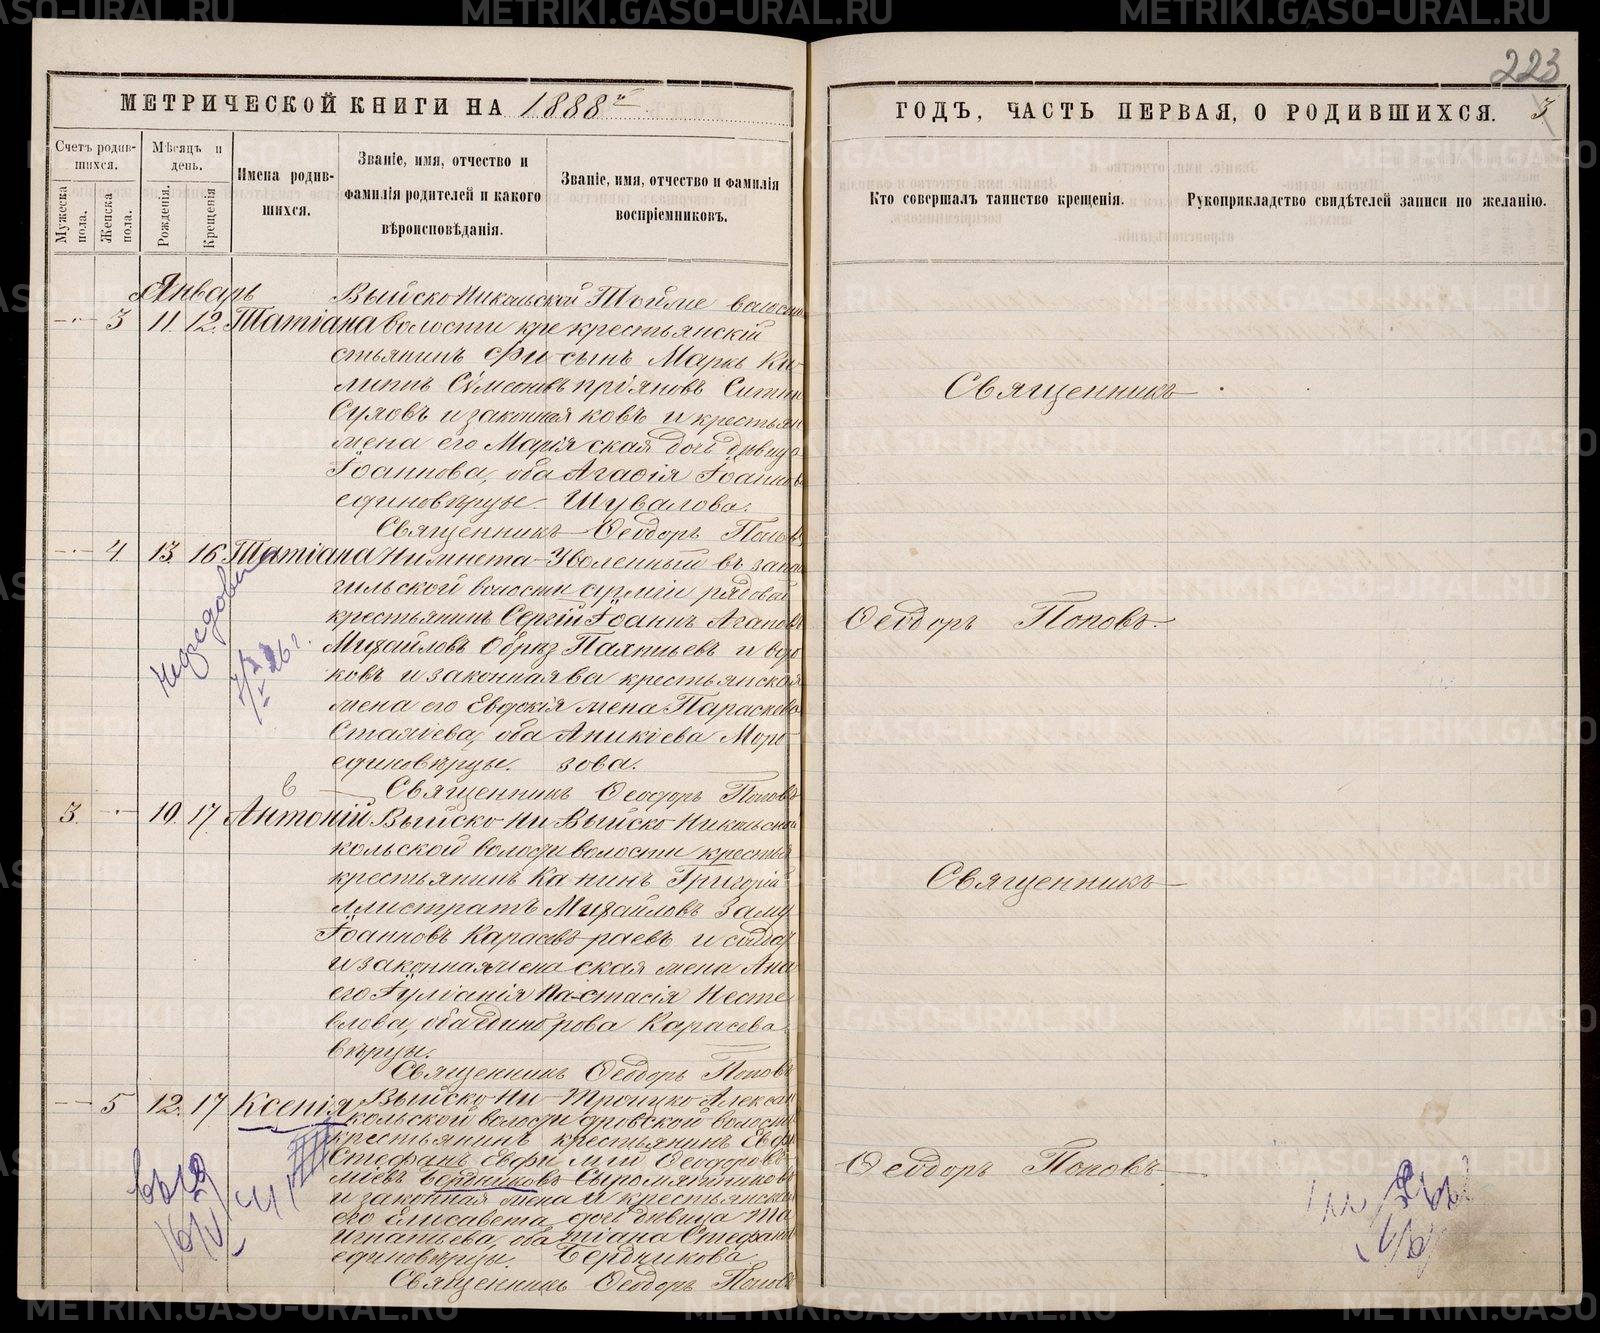 223
МЕТРИЧЕСКОЙ КНИГИ НА 1888й
ГОДЪ, ЧАСТЬ ПЕРВАЯ, О РОДИВШИХСЯ. 3
Счетъ родив-
шихся.
Мѣсяцъ и
день.
Мужеска
пола.
Женска
пола.
Рожденія.
Крещенія
Имена родив-
шихся.
Званіе, имя, отчество и
фамилія родителей и какого
вѣроисповѣданія.
Званіе, имя, отчество и фамилія
воспріемниковъ.
Кто совершалъ таинство крещенія.
Рукоприкладство свидѣтелей записи по желанію.
Январь
3 11. 12. Татіана
Выйско Никольской
волости кре
стьянинъ Фи
липпъ Сѵмеоновъ
Суховъ и законная
жена его Марія
Іоаннова, оба
единовѣрцы.
крестьянскій
сынъ Маркъ Ки-
пріяновъ Ситни
ковъ и крестьян
ская дочь дѣвица
Агафія Іоаннов
Шувалова.
Священникъ Ѳеодоръ Поповъ
4. 13. 16 Татіана
Нижнета-
гильской волости
крестьянинъ Сергій
Михайловъ Обрѣз
ковъ и законная
жена его Евдокія
Стахіева, оба
единовѣрцы.
Уволенный въ запа
арміи рядовой
Іоаннъ Агаповъ
Палтьевъ и
ва крестьянская
жена Параскева
Аникіева Моро-
зова.
Священникъ Ѳеодоръ Поповъ
3. 10. 17. Антоній
Выйско Ни
кольской волости
крестьянинъ Ка
ллистратъ
Іоанновъ Карасевъ
и законная жена
его Іуліанія Па-
влова, оба едино
вѣрцы.
Выйско Никольской
волости кресть
нинъ Григорій
Михайловъ Заму
раевъ и солдат
ская жена Ана
стасія Несте
рова Карасева
Священникъ Ѳеодоръ Поповъ
5 12. 17 Ксенія
Выйско Ни-
кольской волости
крестьянинъ
Стефанъ Евфи
міевъ Бердниковъ
и законная жена
его Елисавета
Игнатьева, оба
единовѣрцы.
Троицко Алексан
дровской волости
крестьянинъ Евфи
мій Ѳеодоровъ
Сыромятниковъ
и крестьянская
дочь дѣвица Та
тіана Стефан
Бердникова
Священникъ Ѳеодоръ Поповъ
Священникъ
Ѳеодоръ Поповъ.
Священникъ
Ѳеодоръ Поповъ
METRIKI.GASO-URAL.RU